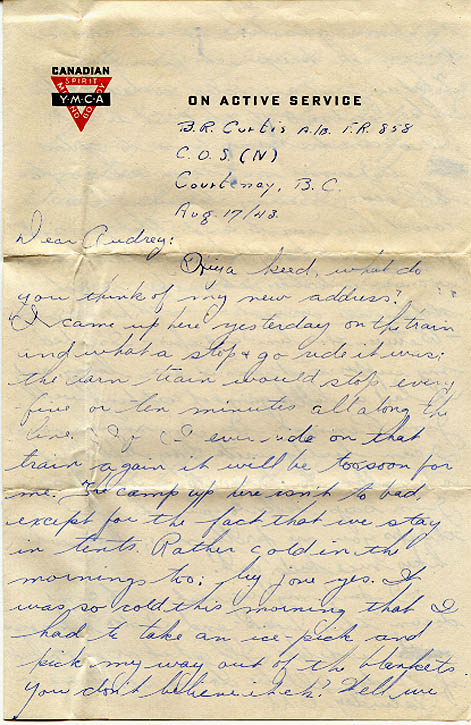 CANADIAN
SPIRIT
MIND
BODY
Y·M·C·A
ON ACTIVE SERVICE
B.R. Curtis A.B. T.R. 858
C.O.S. (N)
Courtenay, B.C.
Aug 17/43.
Dear Audrey:
Hiya keed, what do
you think of my new address?
I came up here yesterday on the train
and what a stop & go ride it was;
the darn train would stop every
five or ten minutes all along the
line. If I ever ride on that
train again it will be too soon for
me. The camp up here isn't to bad
except for the fact that we stay
in tents. Rather cold in the
mornings too; by jove yes. It
was so cold this morning that I
had to take an ice-pick and
pick my way out of the blankets.
You don't believe it eh? Well we